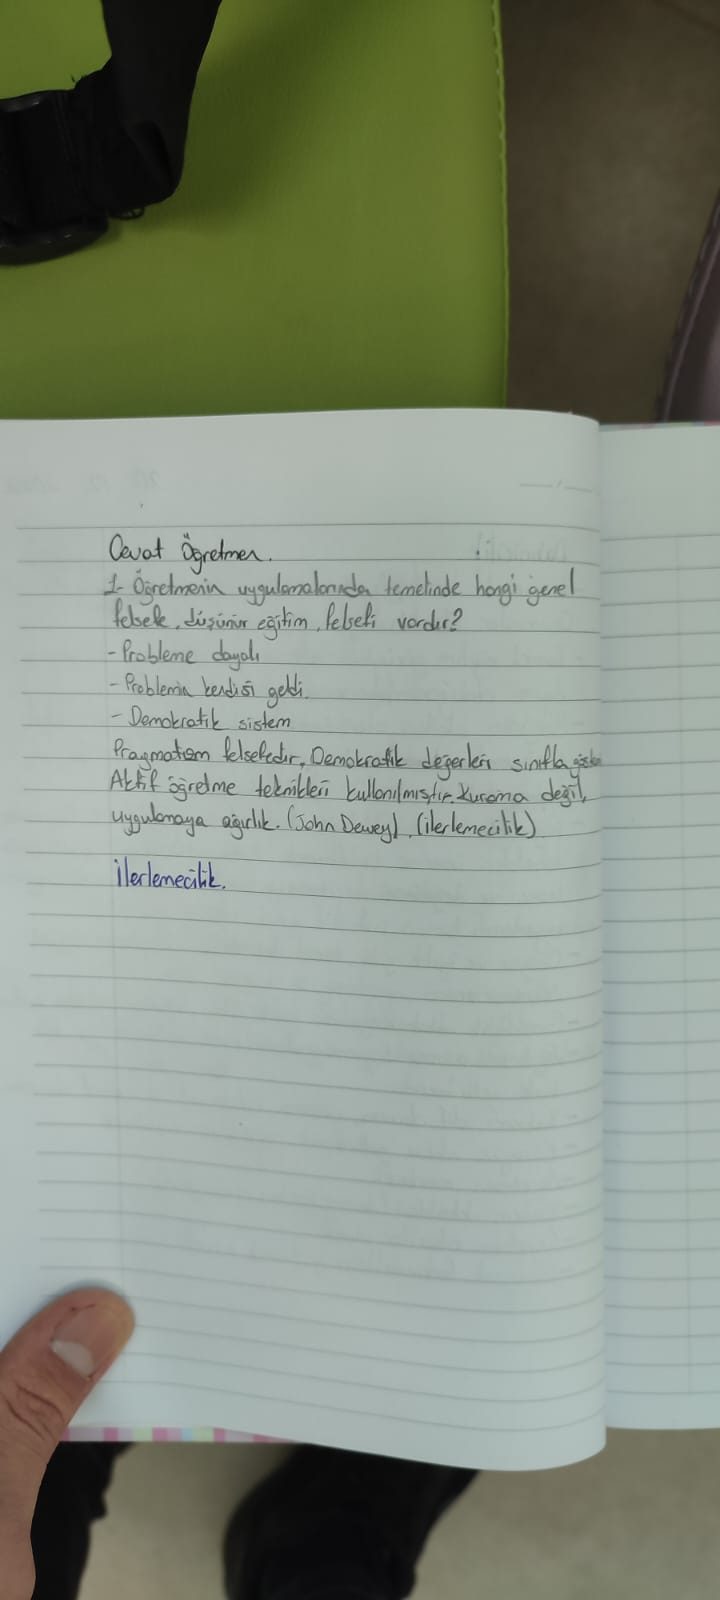 Cevat Öğretmen.
1- Öğretmenin uygulamalarında temelinde hangi genel
felsefe, düşünür eğitim, felsefi vardır?
- Probleme dayalı
- Problemin kendisi geldi.
- Demokratik sistem
Pragmatizm felsefedir, Demokratik değerleri sınıfta
Aktif öğretme teknikleri kullanılmıştır. Kurama değil,
uygulamaya ağırlık. (John Dewey), (ilerlemecilik)
İlerlemecilik.